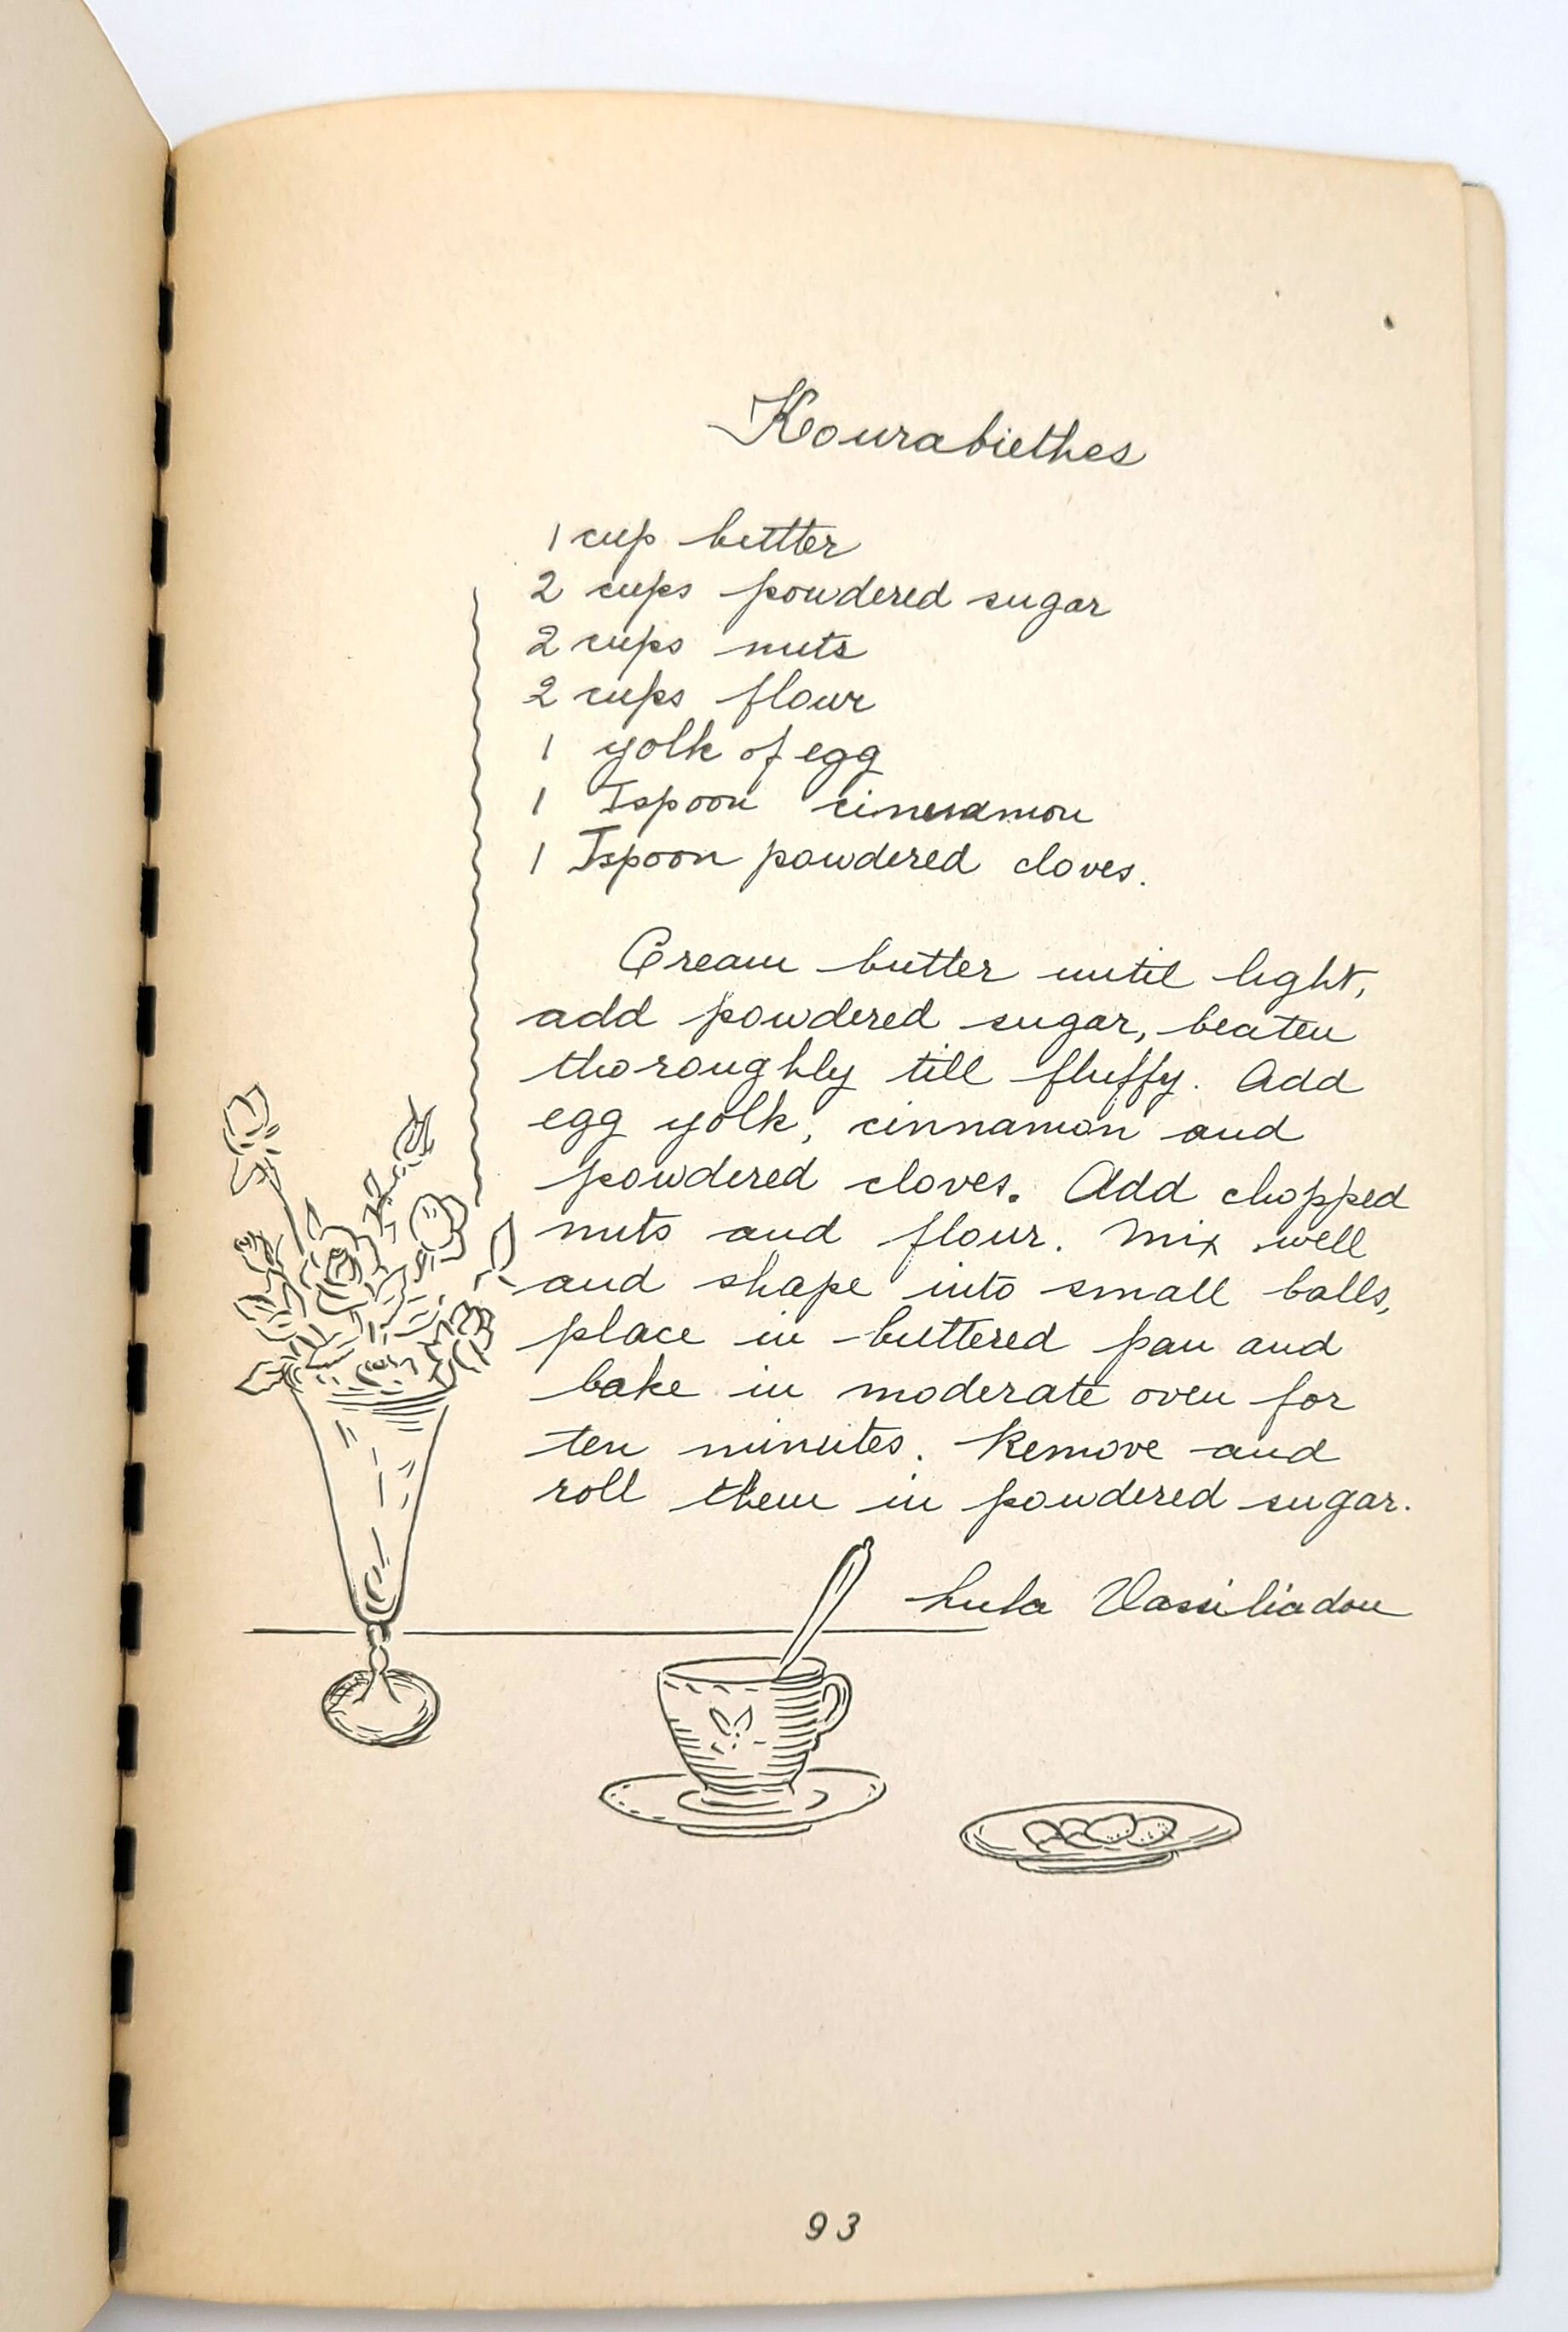 Kourabiethes
1 cup butter
2 cups powdered sugar
2 cups nuts
2 cups flour
1 yolk of egg
1 Tspoon cinnamon
1 Tspoon powdered cloves.
Cream butter until light,
add powdered sugar, beaten
thoroughly till fluffy. Add
egg yolk, cinnamon and
powdered cloves. Add chopped
nuts and flour. Mix well
and shape into small balls,
place in buttered pan and
bake in moderate oven for
ten minutes. Remove and
roll them in powdered sugar.
Lula Vassiliadou
93